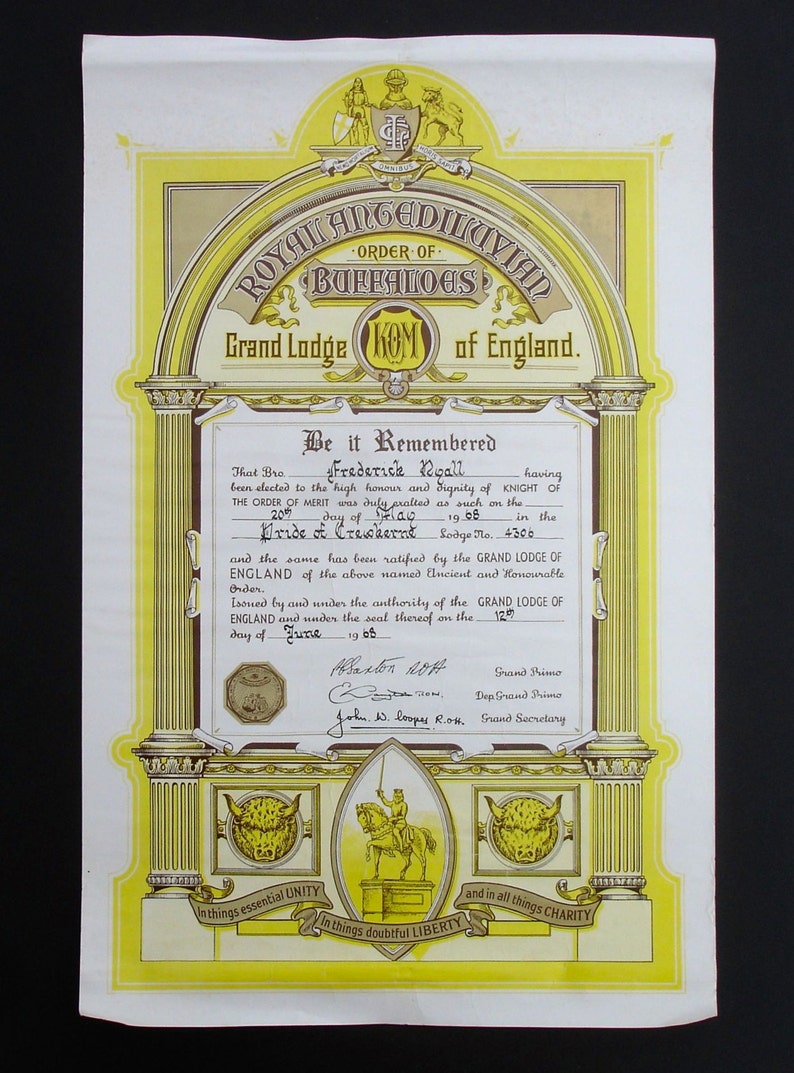 NEMO MORTALIUM OMNIBUS HORIS SAPIT
ROYAL ANTEDILUVIAN
·ORDER·OF·
BUFFALOES
Grand Lodge KOM of England.
Be it Remembered
That Bro. Frederick Nyall having
been elected to the high honour and dignity of KNIGHT OF
THE ORDER OF MERIT was duly exalted as such on the
20th day of May 1968 in the
Pride of Crewkerne Lodge No. 4306
and the same has been ratified by the GRAND LODGE OF
ENGLAND of the above named Ancient and Honourable
Order.
Issued by and under the authority of the GRAND LODGE OF
ENGLAND and under the seal thereof on the 12th
day of June 1968
Saxton ROH Grand Primo
ROH. Dep. Grand Primo
John W. Cooper R.O.H. Grand Secretary
In things essential UNITY
In things doubtful LIBERTY
and in all things CHARITY